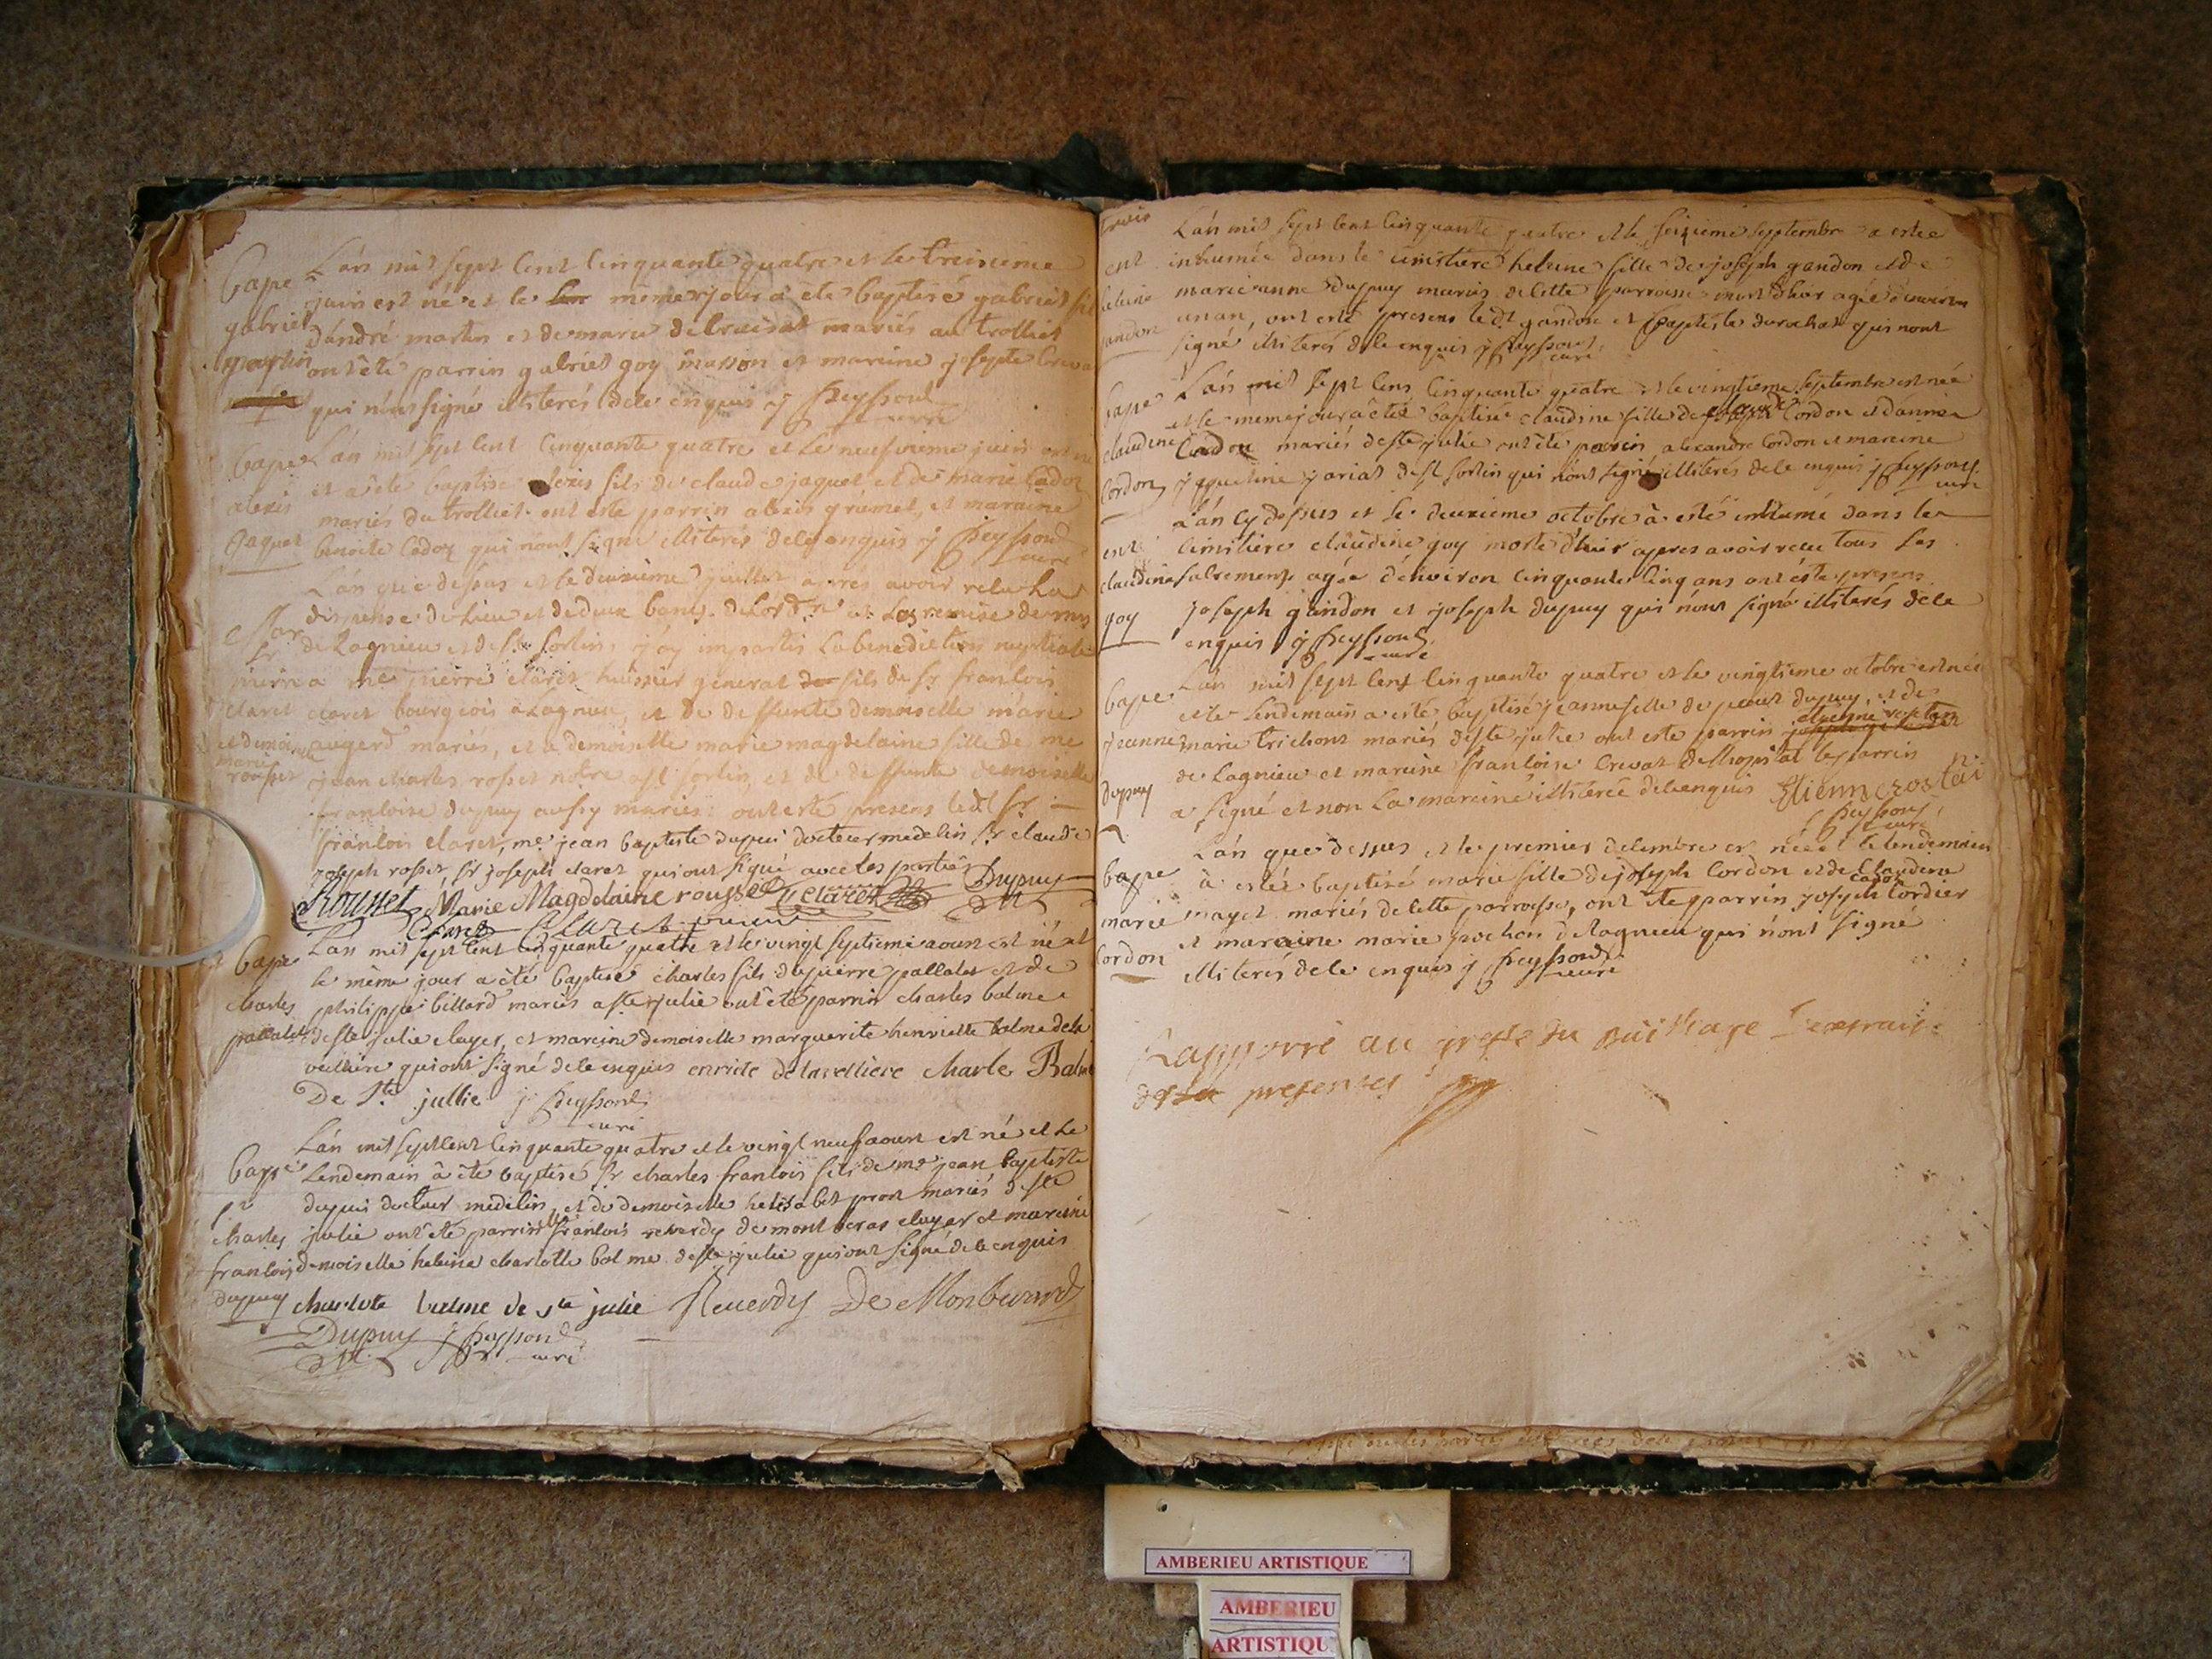 Bape
gabriel
martin
L'an mil sept cent cinquante quatre et le treisieme
juin est né et le même jour a été baptisé gabriel fils
d'andré martin et de marie delraisat mariés au trolliet
ont été parrin gabriel goy masson et mareine josepte Creva
qui n'ont signé illiterés dele enquis j peyssoud
curé
Bape
alexis
Jaquet
L'an mil sept cent cinquante quatre et le neufvieme juin est né
et a été baptisé alexis fils de claude jaquet et de marie Cadoz
mariés du trolliet ont esté parrin alexis grumet, et maraine
benoite Cadoz qui n'ont signé illiterés dele enquis j peyssoud
curé
Mar
sr
pierre
claret
et demoiselle
marie
rousset
L'an que dessus et le deuxieme juillet aprés avoir relu la
dispense de lieu et de deux bancs de l'ord.re et la remise de mrs
de Lagnieu et de st sorlin, j'ay imparti la benediction nuptiale
a me pierre claret huissier general fils de sr francois
claret bourgeois à Lagnieu, et de deffunte demoiselle marie
augerd mariés, et a demoiselle marie magdelaine fille de me
jean charles rosset notre a st sorlin et de deffunte demoiselle
francoise dupuy aussy mariés: ont esté presens ledt sr
francois claret, me jean baptiste dupui docteur medecin sr claude
joseph rosset sr joseph claret qui ont signé avec les parties
Rousset Marie Magdelaine rousset claret Dupuy
Claret Claret
Bape
charles
pallalet
L'an mil sept cent cinquante quatre et le vingt septieme aoust est né et
le même jour a été baptisé charles fils de pierre pallalet et de
philippe billard mariés a ste julie ont été parrin charles balme
de ste julie eluyer, et mareine demoiselle marguerite henriette balme dela
veilliere qui ont signé dele enquis enriete delavelliere charle Balme
De Ste jullie j peyssoud
curé
Bape
sr
charles
francois
dupuy
L'an mil sept cent cinquante quatre et le vingt neuf aoust est né et le
lendemain à été baptisé sr charles francois fils de me jean baptiste
dupui docteur medecin, et de demoiselle helisabet prost mariés d ste
julie ont été parrin francois reverdy de mont beras eluyer et mareine
demoiselle heleine charlotte balme de ste julie qui ont signé dele enquis
charlote balme de ste julie Reuerdy De Monberard
Dupuy j peyssoud
curé
ent
heleine
gandon
L'an mil sept cent cinquante quatre et le seizieme septembre a estée
inhumée dans le cimistiere heleine fille de joseph gandon et de
marie anne dupuy mariés de cette parroisse mort d'hier agée d'environ
un an, ont esté presens le dt gandon et baptiste durochat qui n'ont
signé illiterés dele enquis j peyssoud
curé
bape
claudine
Cordon
L'an mil sept cens cinquante quatre et le vingtieme septembre est née
et le meme jour a été baptisé claudine fille de Cordon et d'annee
Cordon mariés de ste julie ont été parrin alexandre Cordon et mareine
jaqueline jariat de st sorlin qui n'ont signé illiterés dele enquis j peyssoud
curé
ent
claudine
goy
L'an cy dessus et le deuxieme octobre à esté inhumé dans le
cimistiere claudine goy morte d'hier apres avoir receu tous les
sacremens agée d'environ cinquante cinq ans ont été presens
joseph gandon et joseph dupuy qui n'ont signé illiterés dele
enquis j peyssoud
curé
bape
jeanne
dupuy
L'an mil sept cent cinquante quatre et le vingtieme octobre est née
et le lendemain a esté baptisé jeanne fille de dupuy, et de
marie trichont mariés de ste julie ont esté parrin etienne rostaz
de Lagnieu et mareine francoise Crevat de l'hopital le parrin
a signé et non la mareine illiterée dele enquis Etienne rostai
j peyssoud
curé
bape
marie
Cordon
L'an que dessus et le premier decembre est née et le lendemain
à estée baptisé marie fille de joseph Cordon et de Claudine
cadoz
mayet mariés de cette parroisse, ont été parrin joseph Cordier
et maraine marie pochon de Lagnieu qui n'ont signé
illiterés dele enquis j peyssoud
curé
Rapporré au greffe du bailliage l'extrait
des presentes
AMBERIEU ARTISTIQUE
AMBERIEU
ARTISTIQU